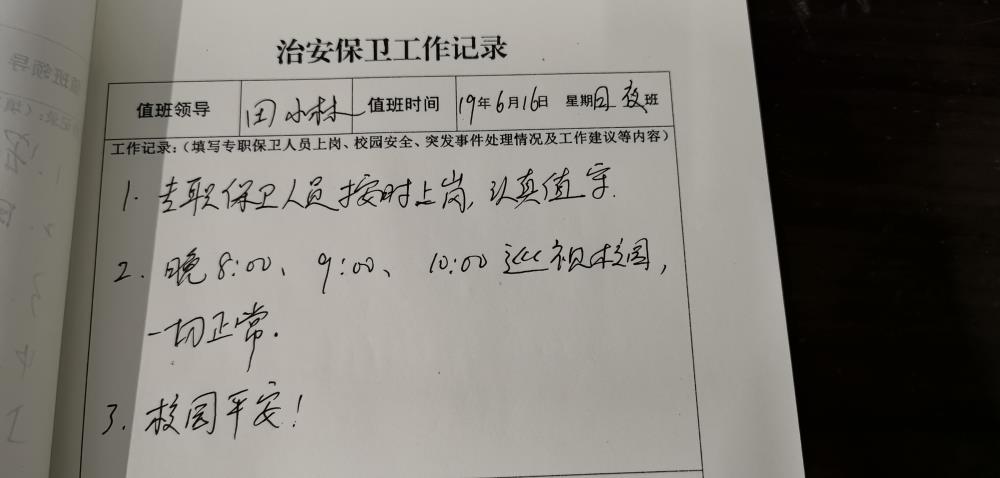 治安保卫工作记录
值班领导 田小林 值班时间 19年6月16日 星期日夜班
工作记录：（填写专职保卫人员上岗、校园安全、突发事件处理情况及工作建议等内容）
1. 专职保卫人员按时上岗，认真值守.
2. 晚8:00、9:00、10:00巡视校园，
一切正常.
3. 校园平安！